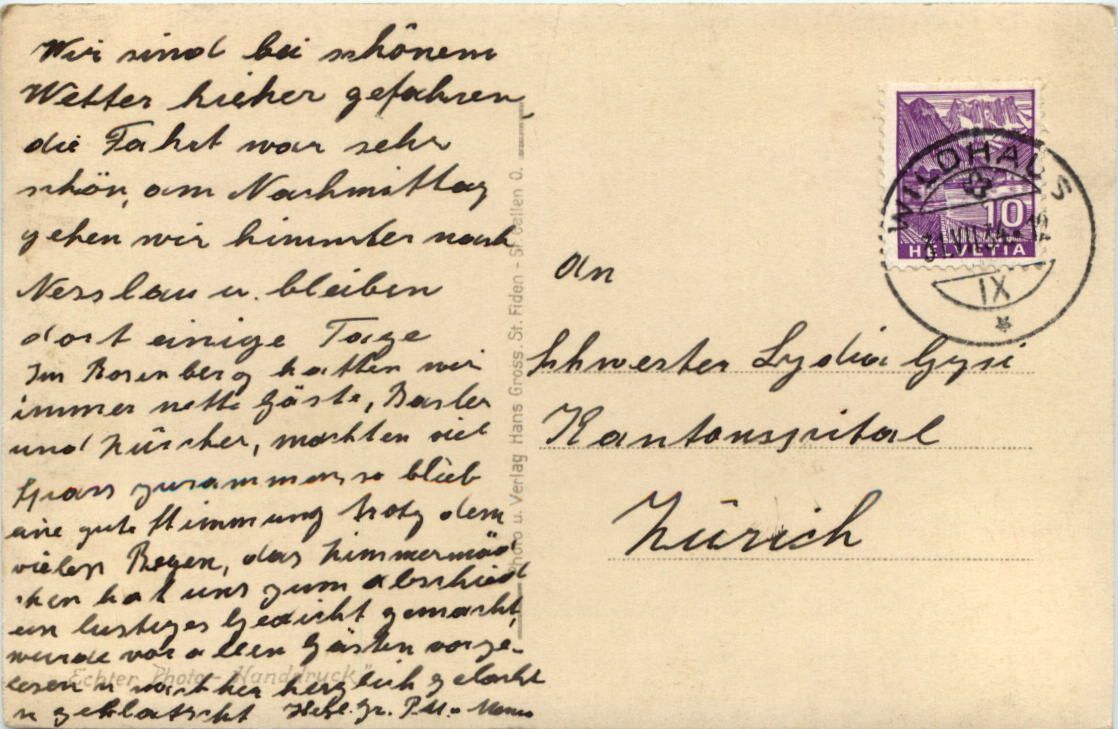 Wir sind bei schönem
Wetter hieher gefahren,
die Fahrt war sehr
schön, am Nachmittag
gehen wir hinunter nach
Nesslau u. bleiben
dort einige Tage
Im Rosenberg hatten wir
immer nette Gäste, Basler
und Zürcher, machten viel
Spass zusammen, so blieb
eine gute Stimmung trotz dem
vielen Regen, das Zimmermäd
chen hat uns zum abschied
ein lustiges Gedicht gemacht,
wurde vor allen Gästen vorge-
lesen u nachher herzlich gelacht
u geklatscht Herzl. Gr.
Echter Photo-Handdruck
Photo u. Verlag Hans Gross. St. Fiden - St Gallen O.
WILDHAUS
31.VII.34
IX
10
HELVETIA
An
Schwester Lydia Gysi
Kantonspital
Zürich